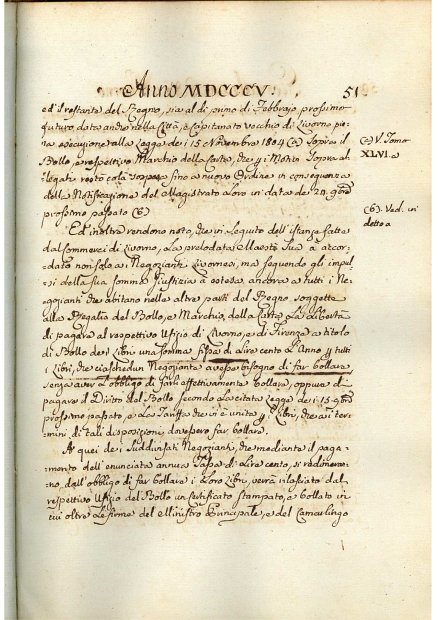 Anno MDCCCV. 51
ed il restante del Regno, sia al dì primo di Febbrajo prossimo
futuro data anche nella Città, e Capitanato vecchio di Livorno pie=
na esecuzione alla Legge de' 15 Novembre 1804 (a) sopra il
(a) V. Tomo
Bollo, e respettivo Marchio della Carta, che pe' Motivi sopra al=
XLVI. a
legati restò colà sospesa sino a nuovo Ordine in consequenza
della Notificazione del Magistrato Loro in data de' 29. 9bre
prossimo passato (b)
(b). Ved. in
detto a
Ed inoltre rendono noto, che in seguito dell'istanze fatte
dal Commercio di Livorno, La prelodata Maestà Sua à accor=
dato non solo a' Negozianti Livornesi, ma seguendo gl'impul=
si della sua somma Giustizia à estesa ancora a tutti i Ne=
gozianti che abitano nelle altre parti del Regno soggette
alla Regalia del Bollo, e Marchio della Carta La libertà
di pagare al respettivo Ufizio di Livorno, e di Firenze a titolo
di Bollo de' i Libri una somma fissa di Lire cento L'Anno per tutti
i Libri, che ciaschedun Negoziante avesse bisogno di far bollare
senza aver L'obbligo di farli effettivamente bollare, oppure di
pagare il Diritto del Bollo secondo La citata Legge de' 15. 9bre
prossimo passato, e La Tariffa che vi è unita per i Libri, che ai ter=
mini di tali disposizioni dovessero far bollare.
A quei de' i suddivisati Negozianti, che mediante il paga=
mento dell'enunciata annua Tassa di Lire cento, si redimeran=
no, dall'obbligo di far bollare i Loro Libri, verrà rilasciato dal
respettivo Ufizio del Bollo un certificato stampato, e bollato in
cui oltre Le firme del Ministro Principale, e del Camarlingo